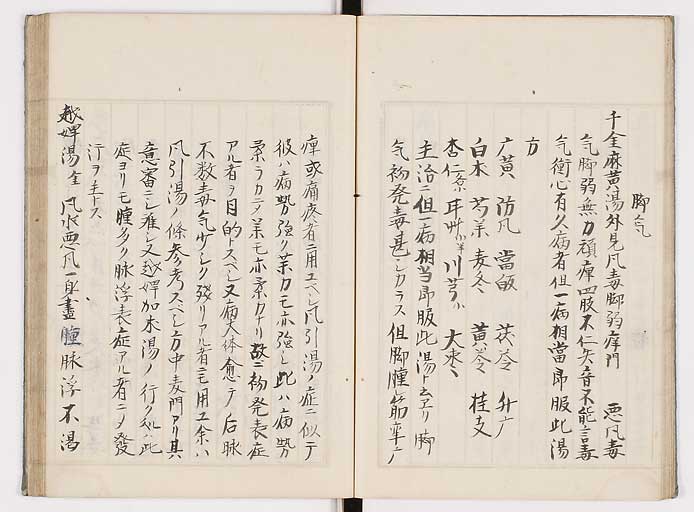 脚气
千金麻黄湯外見风毒脚弱痺門　悪风毒
气脚弱無力頑痺四肢不仁失音不能言毒
气衝心有久病者但一病相當即服此湯
方
广黄　防风　當皈　茯苓　升广
白木　芍薬　麦冬　黄芩　桂支
杏仁　甘草　川芎　大枣
主治ニ但一病相当即服此湯ト云ヱリ脚
气初発毒甚シカラス但脚腫レ筋牽广
痺或痛疼者ニ用ユベシ风引湯ノ症ニ似テ
彼ハ病勢強ク薬力モ亦強シ此ハ病勢
柔ラカテ薬モ亦柔カナリ故ニ初発表症
アル者ヲ目的トスベシ又病大体愈テ后脉
不数毒气少シク残リアル者ニモ用ユ余ハ
风引湯ノ條参考スベシ方中麦門アリ其
意審ニシ難シ又越婢加朮湯ノ行ク処ハ此
症ヨリモ腫多ク脉浮表症アル者ニメ發
行ヲ主トス
越婢湯金　风水悪风一身盡腫脉浮不渴